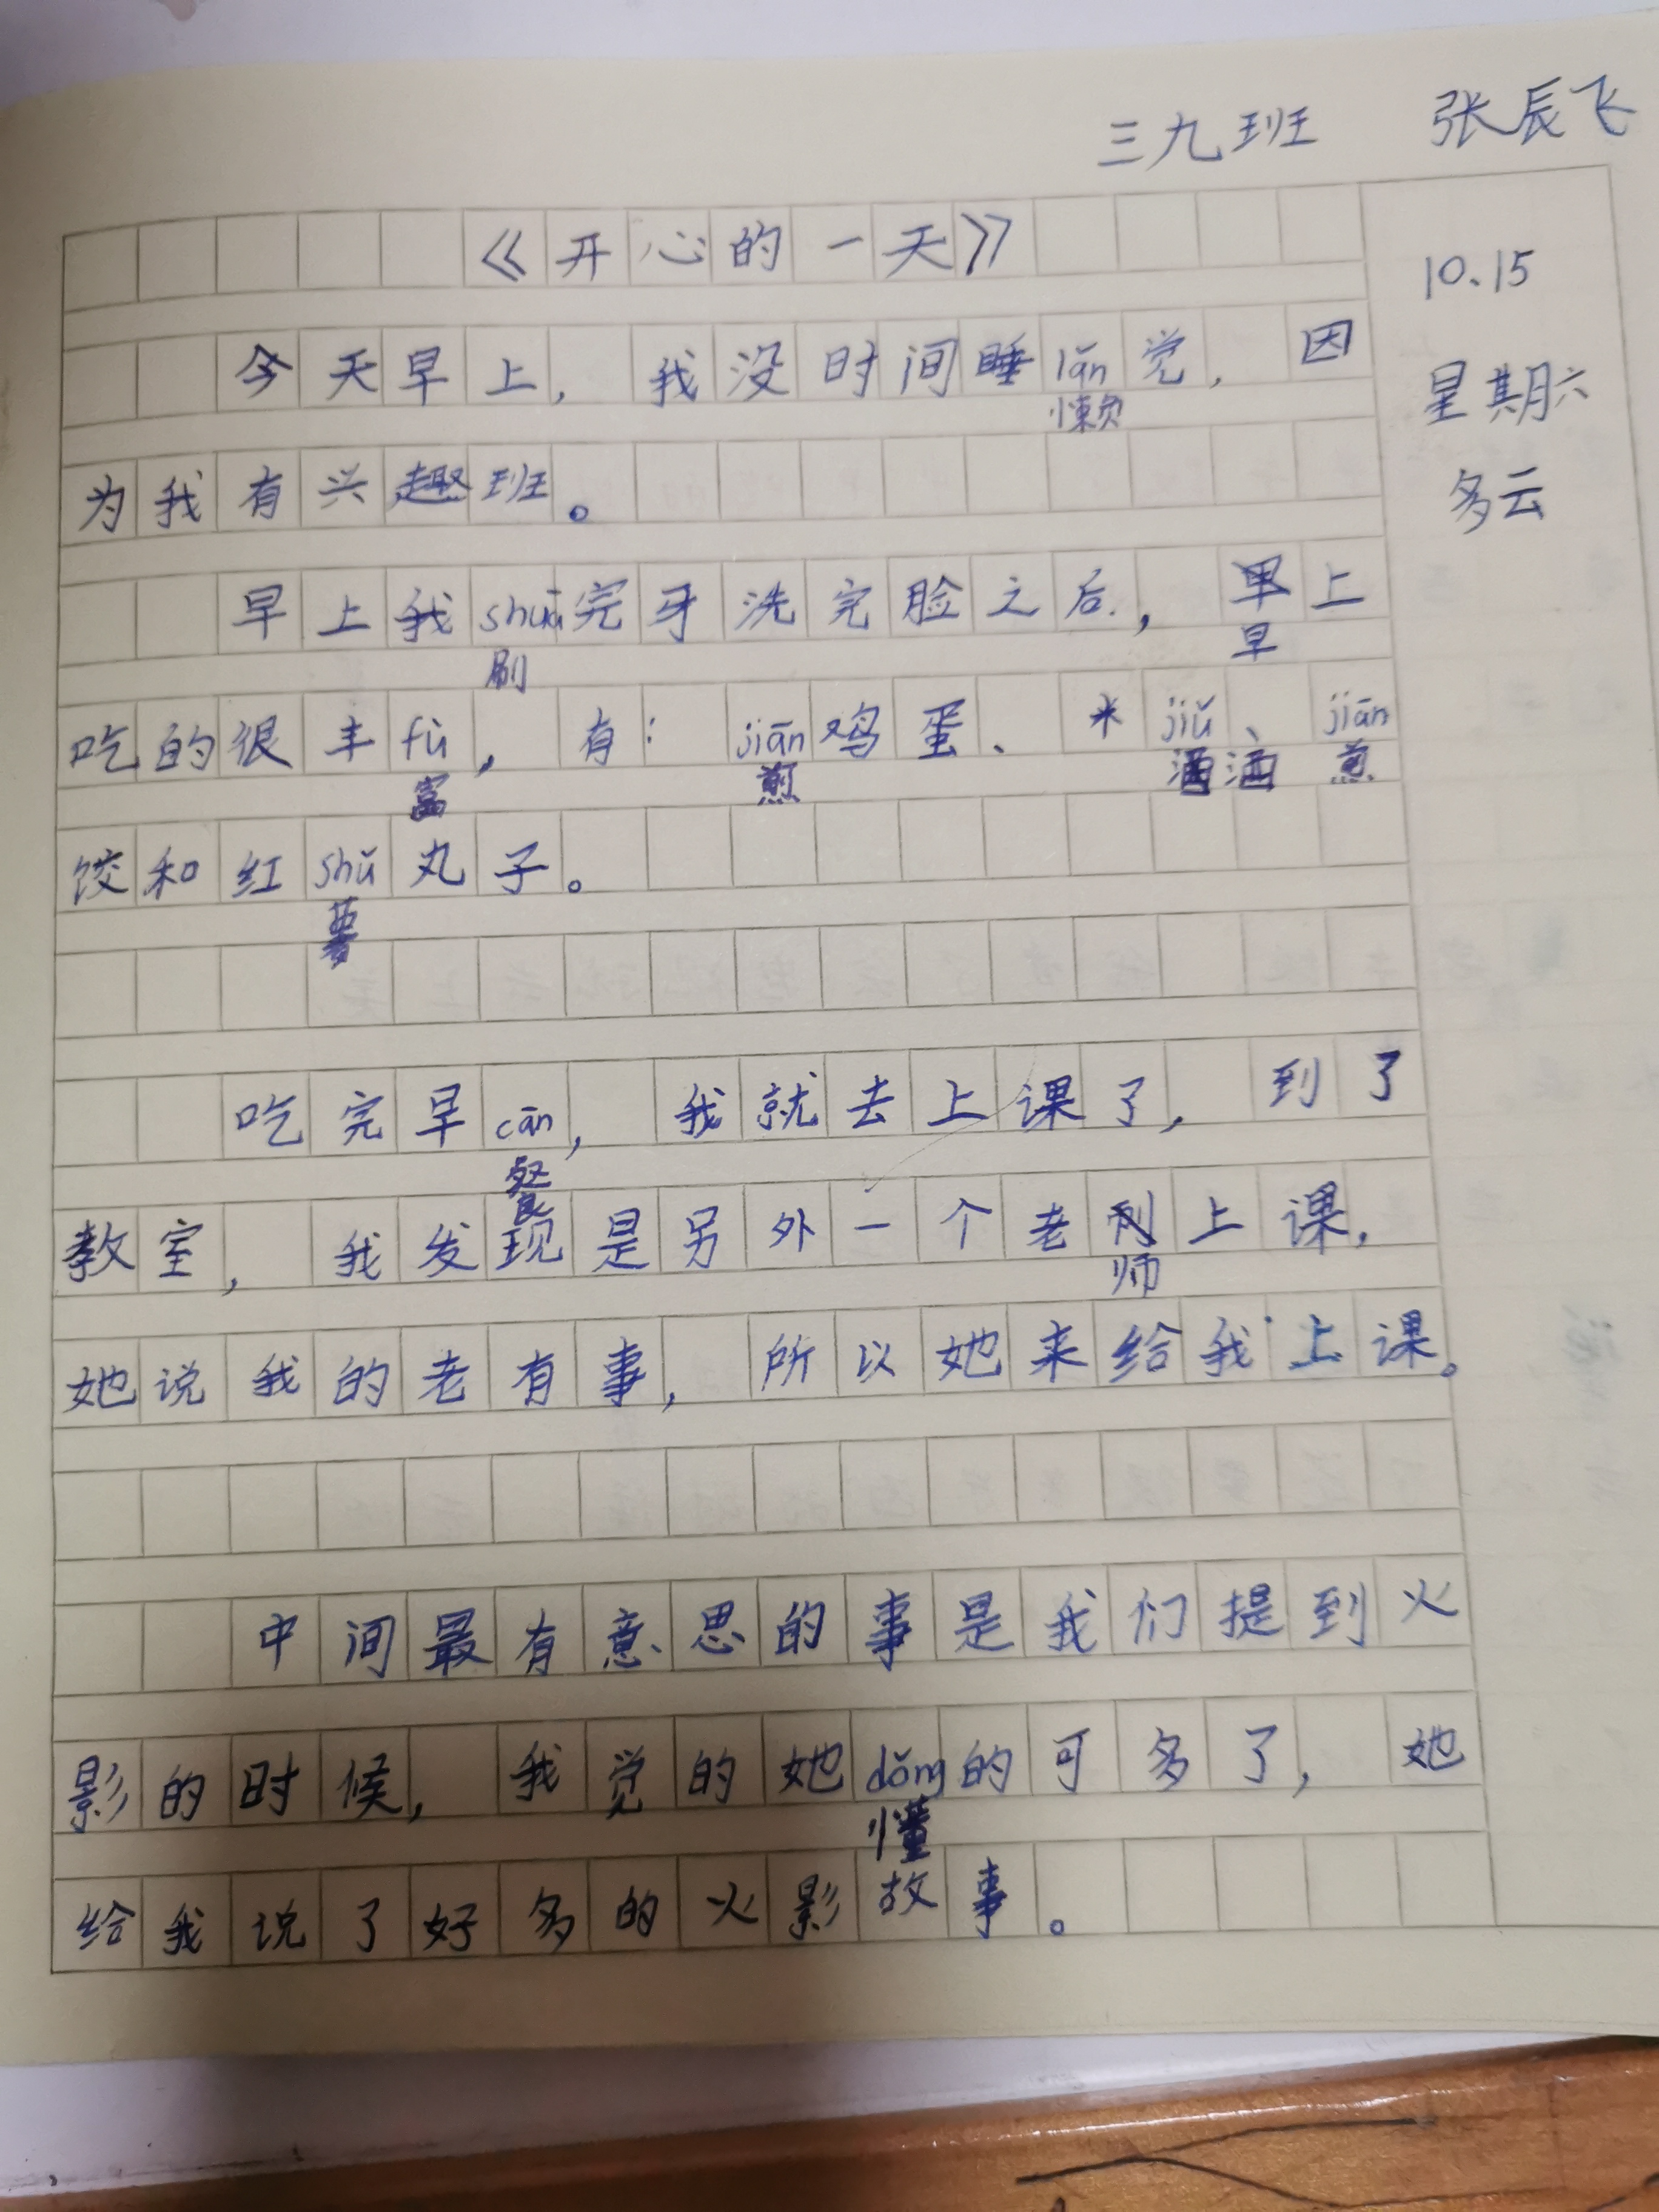 三九班 张辰飞
《开心的一天》
10.15
星期六
多云
今天早上，我没时间睡lǎn觉，因
懒
为我有兴趣班。
早上我shuā完牙洗完脸之后，里上
刷 早
吃的很丰fù，有：jiān鸡蛋、米jiǔ、jiān
富 煎 酒 煎
饺和红shǔ丸子。
薯
吃完早cān，我就去上课了，到了
餐
教室，我发现是另外一个老上课，
师
她说我的老有事，所以她来给我上课。
中间最有意思的事是我们提到火
影的时候，我觉的她dǒng的可多了，她
懂
给我说了好多的火影故事。